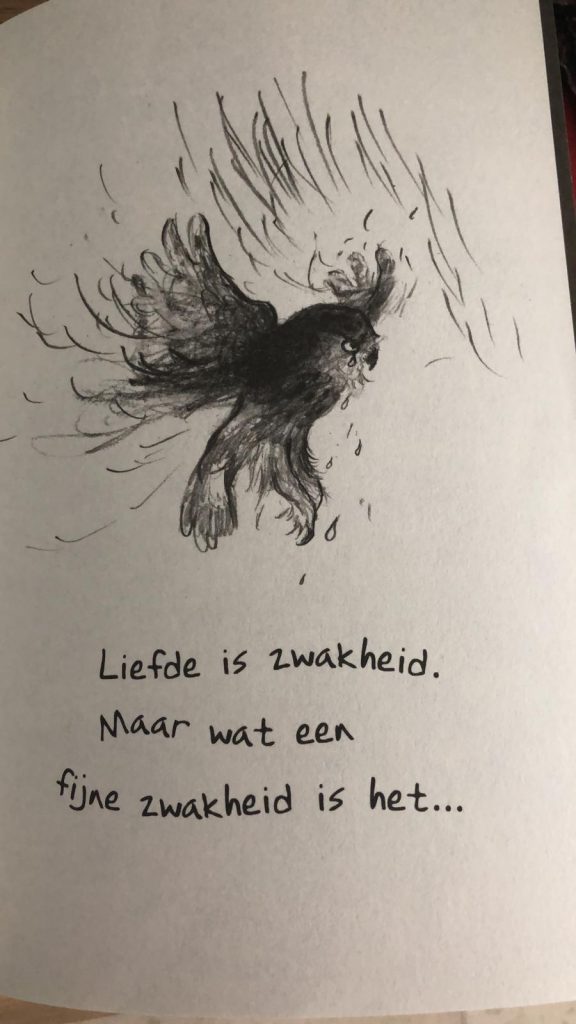 Liefde is zwakheid.
Maar wat een
fijne zwakheid is het...